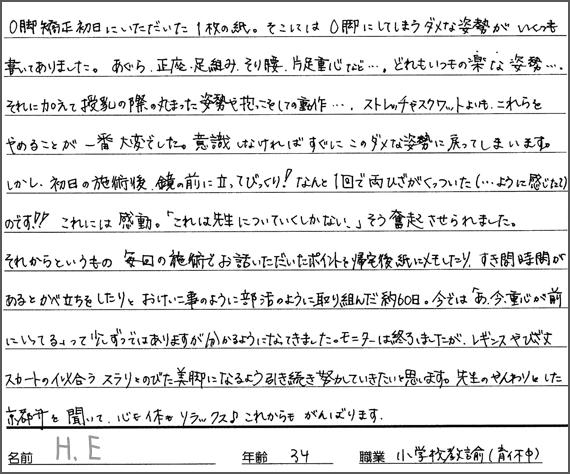 O脚矯正初日にいただいた1枚の紙。そこにはO脚にしてしまうダメな姿勢がいくつも
書いてありました。あぐら、正座、足組み、そり腰、片足重心など…、どれもいつもの楽な姿勢…。
それに加えて授乳の際の丸まった姿勢や抱っこをしての動作…、ストレッチやスクワットよりも、これらを
やめることが一番大変でした。意識しなければすぐにこのダメな姿勢に戻ってしまいます。
しかし、初日の施術後、鏡の前に立ってびっくり!なんと1回で両ひざがくっついた(…ように感じた)
のです!!これには感動。「これは先生についていくしかない。」そう奮起させられました。
それからというもの毎回の施術でお話いただいたポイントを帰宅後紙にメモしたり、すき間時間が
あるとかが立ちをしたりと、おけいこ事のように部活のように取り組んだ約60日。今では「あ、今、重心が前
にいってる」って少しずつではありますが分かるようになってきました。モニターは終了しましたが、レギンスやひざ丈
スカートの似合うスラリとのびた美脚になるよう引き続き努力していきたいと思います。先生のやんわりとした
京都弁を聞いて、心も体もリラックス♪これからもがんばります。
名前 H.E 年齢 34 職業 小学校教諭(育休中)